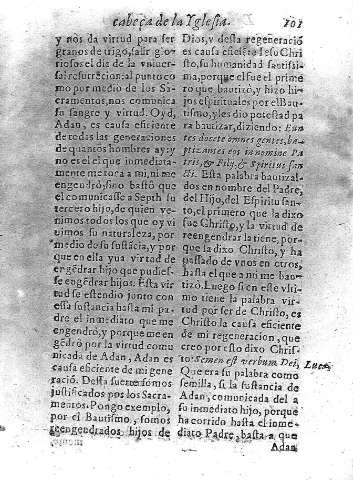 cabeça de la Yglesia.
101
y nos da virtud para ser
granos de trigo, salir glo-
riosos el dia de la vniuer-
sal resurrecciõ: al punto co
mo por medio de los Sa-
cramentos, nos comunica
su sangre y virtud. Oyd,
Adan, es causa eficiente
de todas las generaciones
de quantos hombres ay: y
no es el que inmediata-
mente me tora a mi, ni me
engendrò; sino bastò que
el comunicasse a Septh su
tercero hijo, de quien ve-
nimos todos los que oy vi
uimos su naturaleza, por
medio de su sustãcia, y por
que en ella yua virtud de
engẽdrar hijo que pudies-
se engẽdrar hijos. Esta vir
tud se estendio junto con
essa sustancia hasta mi pa-
dre el inmediato que me
engendrò, y porque me en
gẽdrò por la virtud comu
nicada de Adan, Adan es
causa eficiente de mi gene
raciõ. Desta suerte somos
justificados por los Sacra-
mentos. Pongo exemplo,
por el Bautismo, somos
reengendrados hijos de
Dios, y desta regeneraciõ
es causa eficiẽte Iesu Chri
sto, su humanidad santissi-
ma, porque el fue el prime
ro que bautizò, y hizo hi-
jos espirituales por el Bau-
tismo, y les dio potestad pa
ra bautizar, diziendo: Eun
tes docete omnes gentes, bap
tizantes eos in nomine Pa
tris, & Filij, & Spiritus san
cti. Esta palabra bautiza-
dos en nombre del Padre,
del Hijo, del Espiritu san-
to, el primero que la dixo
fue Christo, y la virtud de
reengendrar la tiene, por-
que la dixo Christo, y ha
passado de vnos en otros,
hasta el que a mi me bau-
tizò. Luego si en este vlti-
mo tiene la palabra vir-
tud por ser de Christo, es
Christo la causa eficiente
de mi regeneracion, que
creo por esto dixo Chris-
to: Semen est verbum Dei,
Luc.
Que era su palabra como
semilla, si la sustancia de
Adan, comunicada del a
su inmediato hijo, porque
ha corrido hasta el inme-
diato Padre, basta a que
Adan